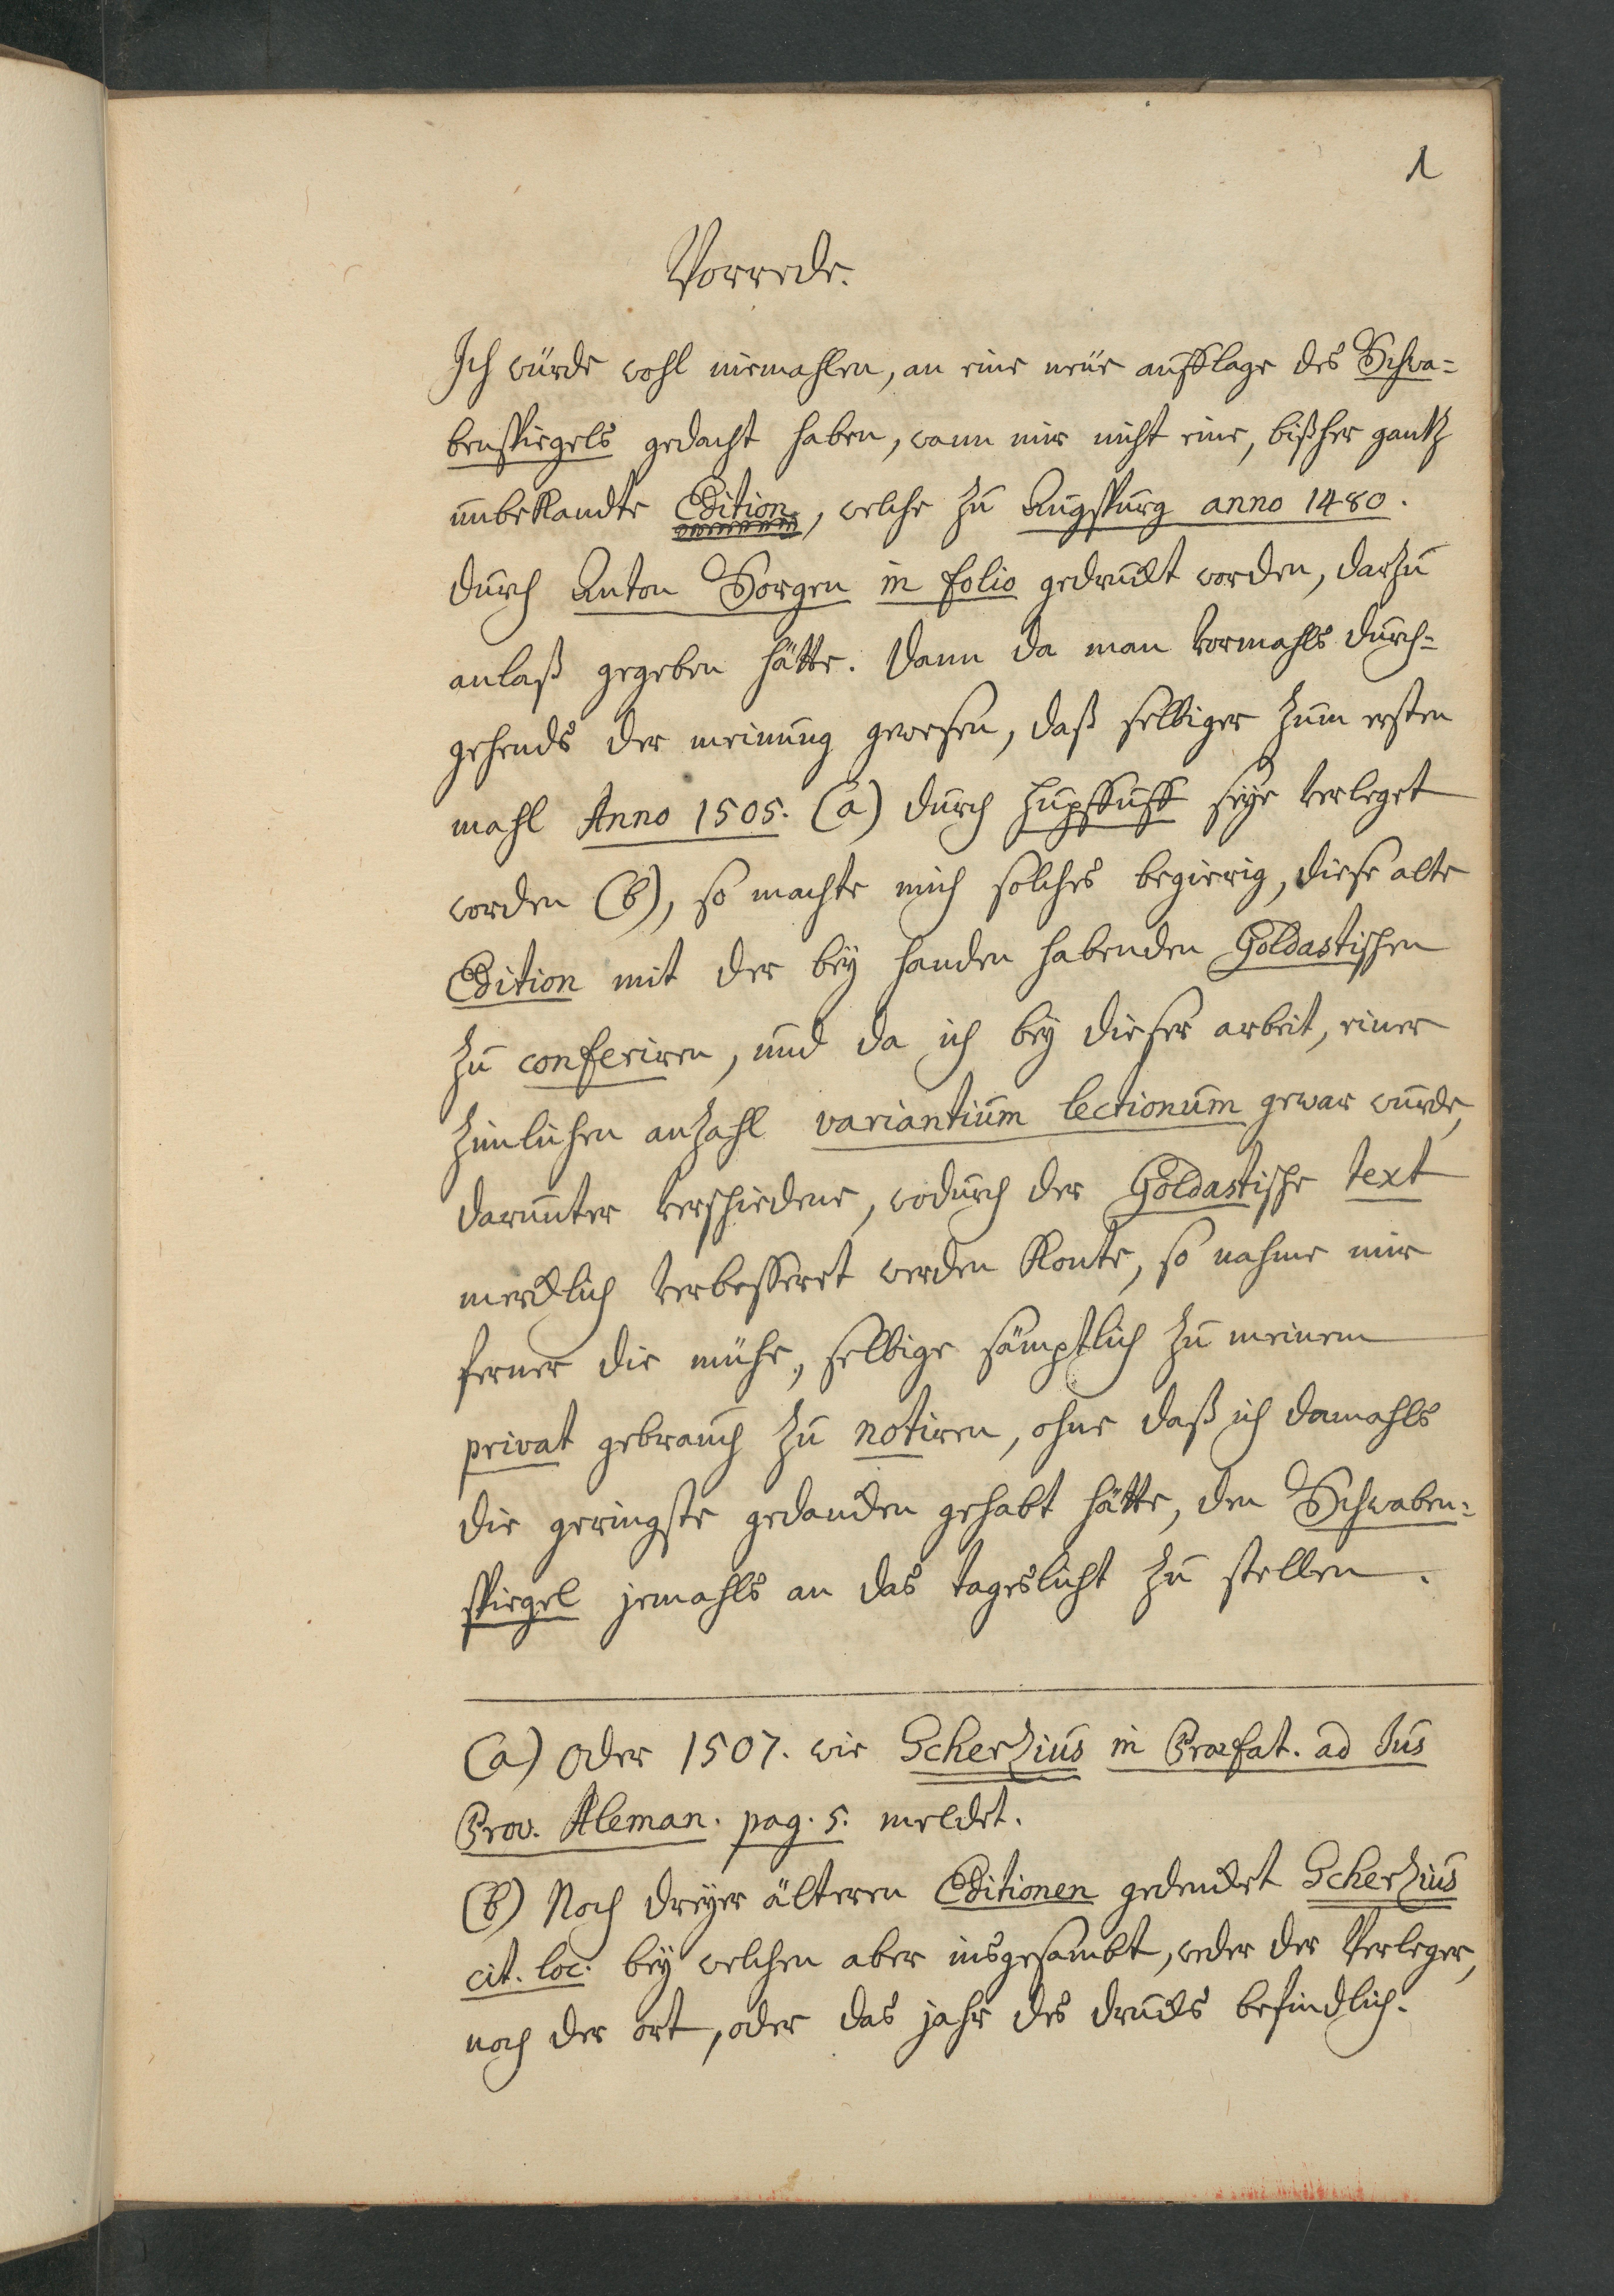 1
Vorrede.
Ich würde wohl niemahlen, an eine neüe aufflage des Schwa=
benspiegels gedacht haben, wann mir nicht eine, bißher gantz
unbekandte Edition, welche zu Augspurg anno 1480.
durch Anton Sorgen in folio gedruckt worden, darzu
anlaß gegeben hätte. Dann da man vormahls durch=
gehends der meinung gewesen, daß selbiger zum ersten
mahl Anno 1505. (a) durch Hupffuff seye verleget
worden (b), so machte mich solches begierig, diese alte
Edition mit der bey handen habenden Goldastischen
zu conferiren, und da ich bey dieser arbeit, einer
zimlichen anzahl variantium lectionum gewar wurde,
darunter verschiedene, wodurch der Goldastische text
mercklich verbesseret werden konte, so nahme mir
ferner die mühe, selbige sämptlich zu meinem
privat gebrauch zu notiren, ohne daß ich damahls
die geringste gedancken gehabt hätte, den Schwaben=
spiegel jemahls an das tageslicht zu stellen.
(a) Oder 1507. wie Scherzius in Praefat. ad Jus
Prov. Aleman. pag. 5. meldet.
(b) Noch dreyer älteren Editionen gedencket Scherzius
cit. loc. bey welchen aber insgesambt, weder der Verleger,
noch der ort, oder das jahr des drucks befindlich.